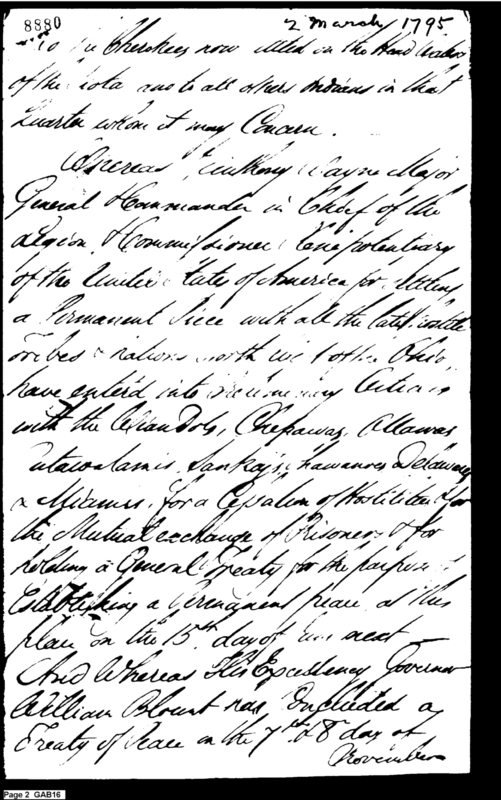 8880
2 March 1795.
To the Cherokees now settled on the Head Waters
of the Siota and to all others Indians in that
Quarter whom it may Concern.
Whereas Anthony Wayne Major
General & Commander in Chief of the
Legion & Commissioner Plenipotentiary
of the United States of America for settling
a Permanent Peace with all the late hostile
Tribes & nations north west of the Ohio,
have enter'd into Preliminary Articles
with the Wiandots, Chepawas, Ottawas
Putawatamis, Sankeys, Shawanoes Delawares
& Miamis, for a Cessation of Hostilities & for
the Mutual exchange of Prisoners & for
holding a General Treaty for the purpose of
Establishing a Permanent peace at this
place on the 15th day of June next —
And Whereas His Excellency Governor
William Blount has Concluded a
Treaty of Peace on the 7th & 8 day of
November
Page 2 GAB16